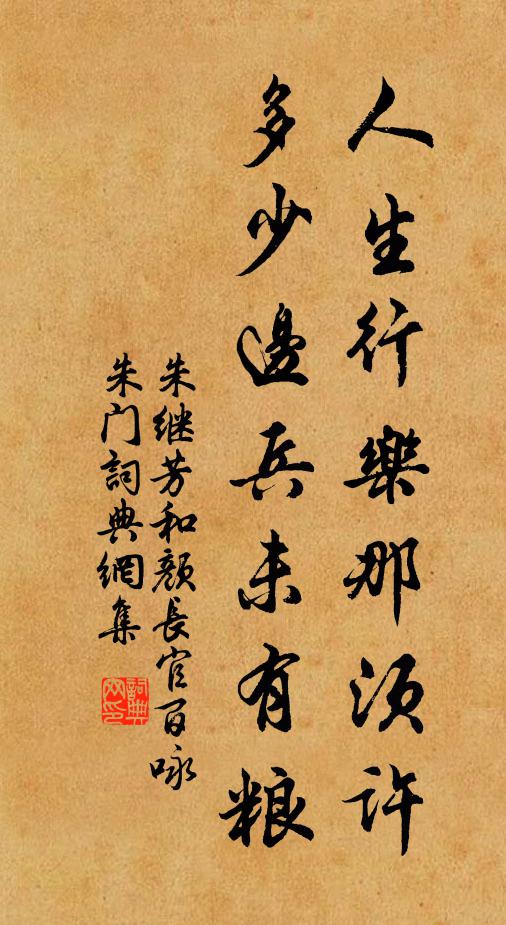 人生行樂那須許
多少邊兵未有粮
朱继芳和顏長官百咏
朱门詞典網集
詞典
网印